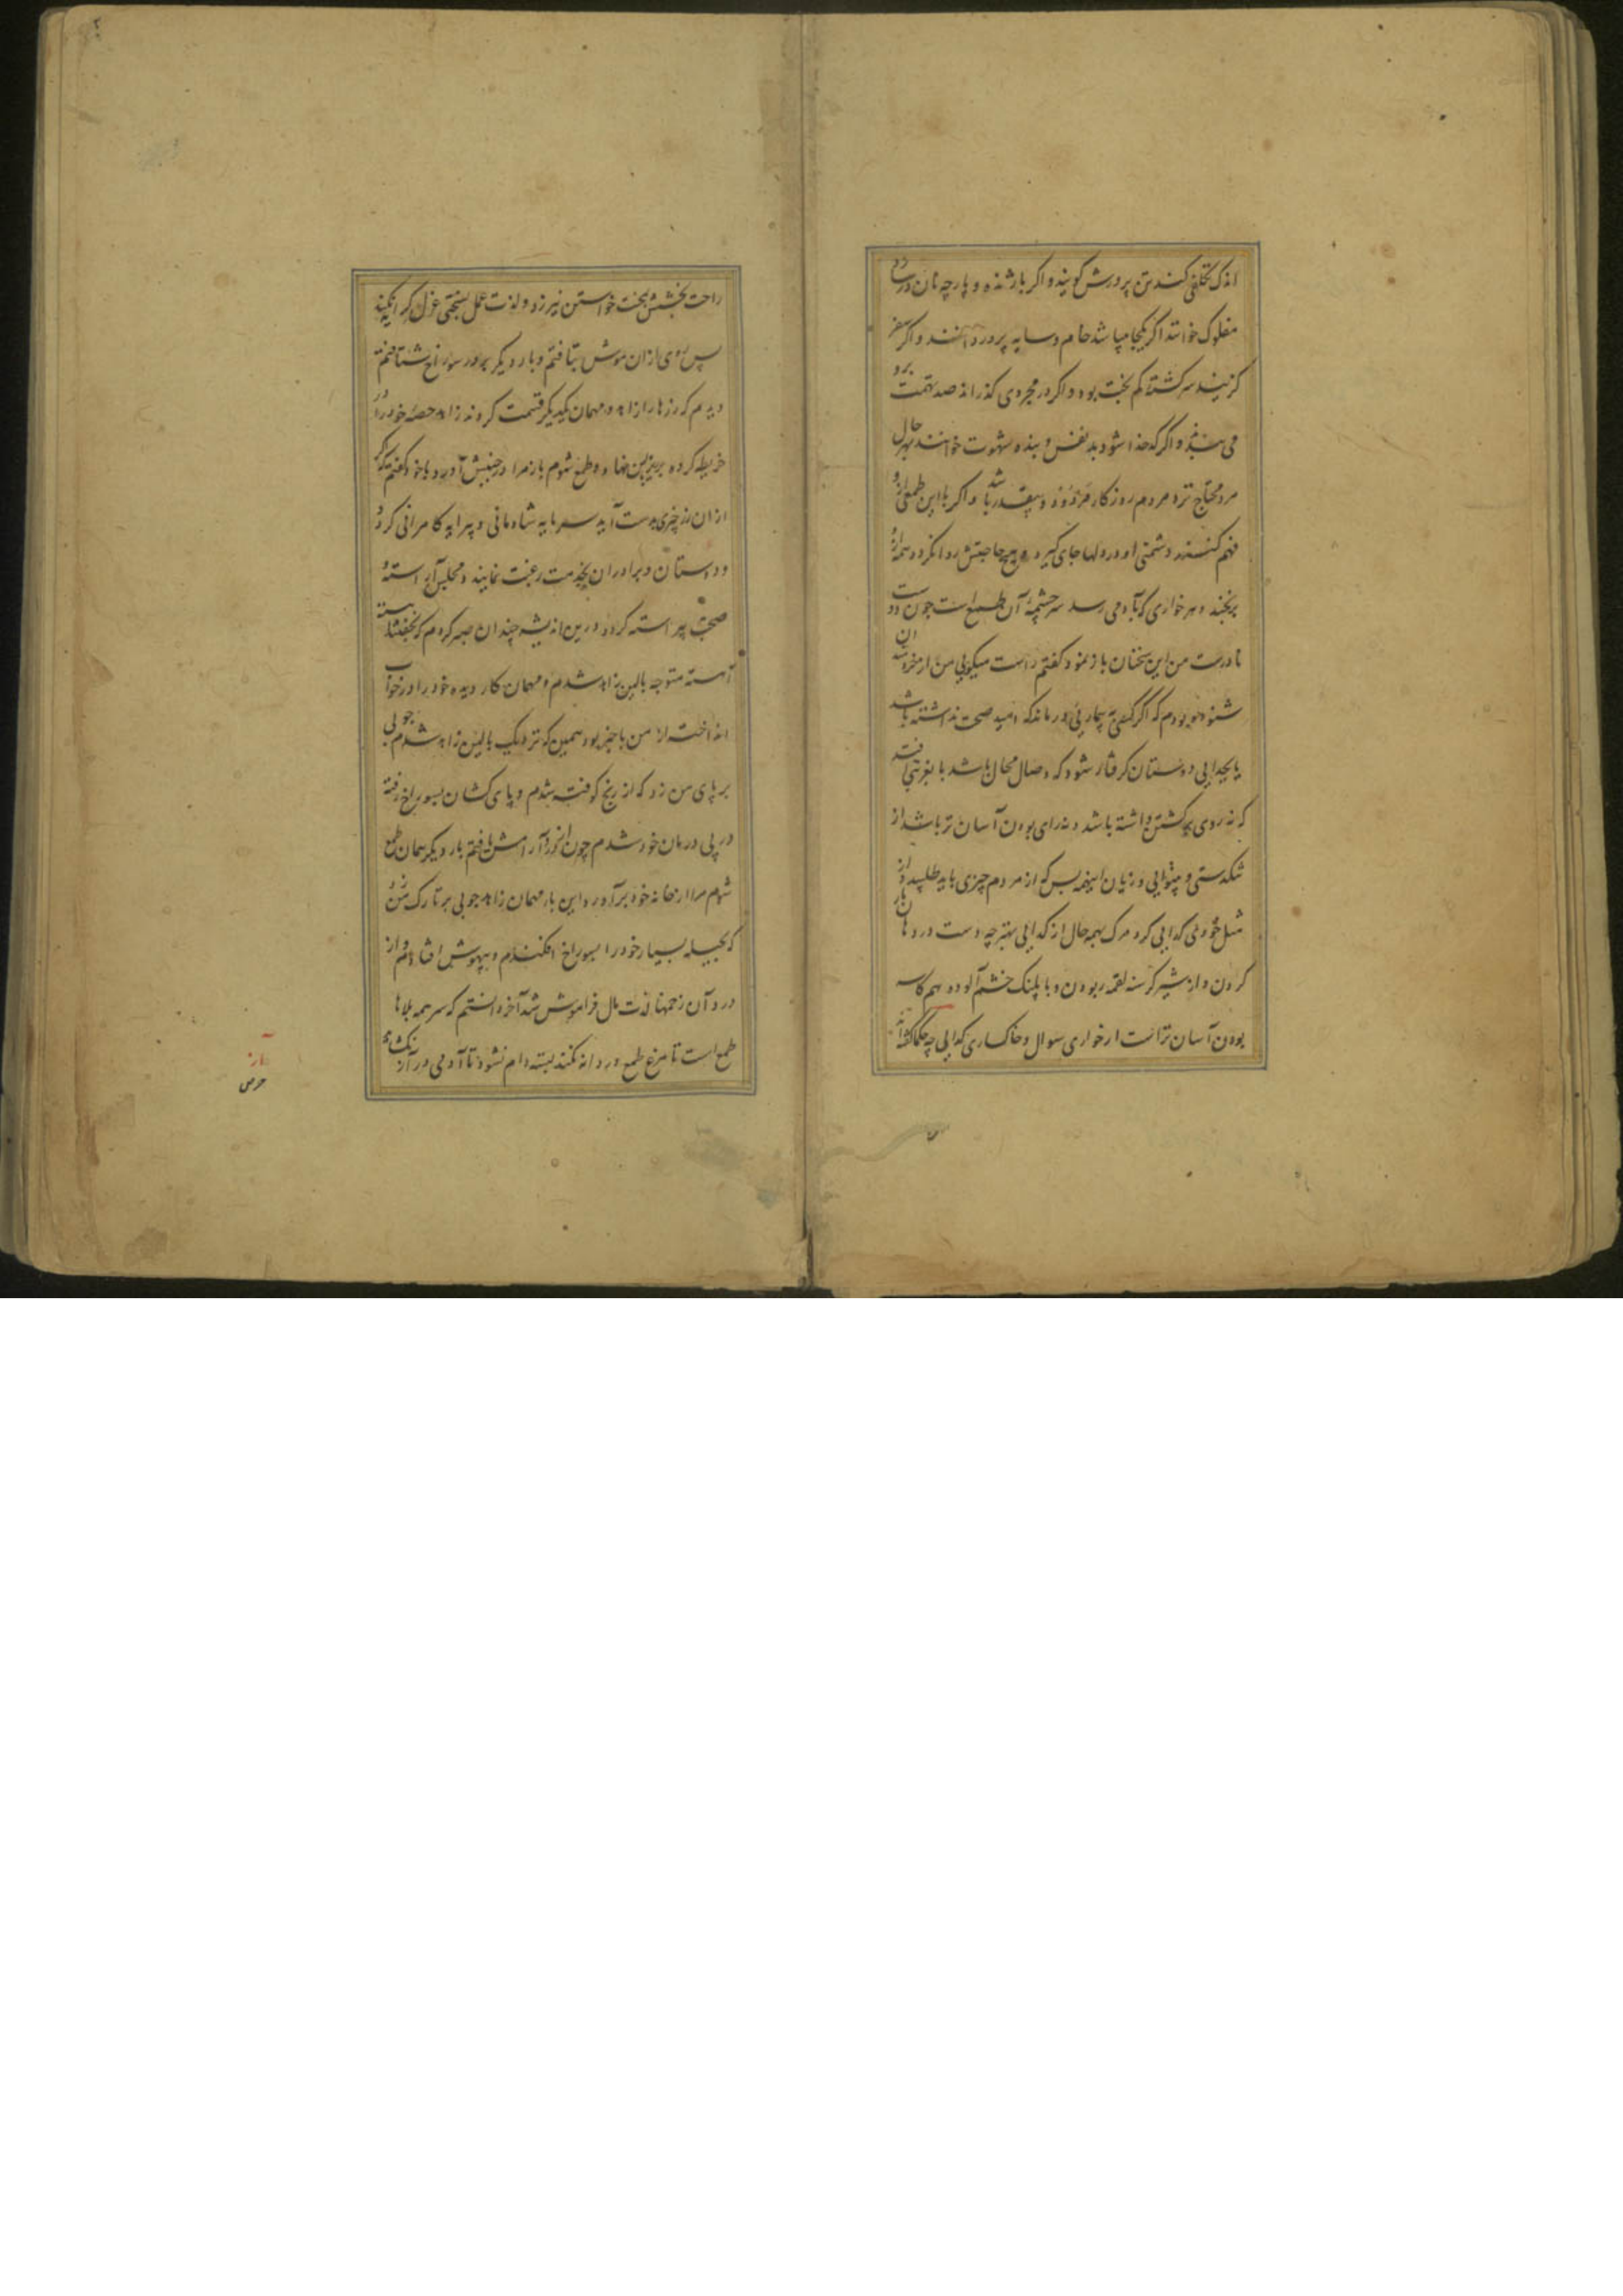 اندک تکلفی کند تن پرورش گویند و اکر بازنده و پارچه نان در سازد
مفلوک خوانند اکر یکجا میباشد خام و سایه پرورد دانند و اکر سفر
کزیند سرکشته کم بخت بود و اکر در مجردی کذراند صد تهمت برو
می بندند و اکر کدخدا شود بد نفس و بنده شهوت خوانند بهر حال
مرد محتاج نزد مردم روزکار مردود و بیقدر باشد و اکر با این طمعی ازو
فهم کنند دشمنی او در دلها جای کیرد و هیچ حاجتش روا نکردد و همه ازو
برنجند و هر خواری که بآدمی رسد سرچشمه آن طمع است چون دوست
نادرست من این سخنان باز نمود کفتم راست میکویی من از خردمندان
شنوده بودم که اکر کسی به بیماریی درماند که امید صحت نداشته باشد
یا بجدایی دوستان کرفتار شود که وصال محال باشد یا بغربتی افتد
که نه روی برکشتن داشته باشد و نه رای بودن آسان تر باشد از
تنکدستی و بینوایی و زیان اینهمه بس که از مردم چیزی باید طلبید و از
مثل خودی کدایی کرد مرک بهمه حال از کدایی بهتر چه دست در دهان مار
کردن و از شیر کرسنه لقمه ربودن و با پلنک خشم آلوده هم کاسه
بودن آسان تر است از خواری سوال و خاکساری کدایی چه حکما کفته اند
راحت بخشش بمحنت خواستن نیرزد و لذت عمل بسختی عزل کرا نکند
پس روی از ان موش بتافتم و بار دیکر بر در سوراخ شتافتم
دیدم که زرها را زاهد و مهمان بیکدیکر قسمت کردند زاهد حصه خود را در
خریطه کرده بزیر بالین نهاد و طمع شوم باز مرا در جنبش آورد با خود کفتم که اکر
از ان زر چیزی بدست آید سرمایه شادمانی و پیرایه کامرانی کردد
و دوستان و برادران بخدمت رغبت نمایند و مجلس آراسته و
صحبت پیراسته کردد درین اندیشه چندان صبر کردم که بخفتند
آهسته متوجه بالین زاهد شدم و مهمان کار دیده خود را در خواب
انداخته از من با خبر بود همین که نزدیک بالین زاهد شدم چوبی
بر پای من زد که از رنج کوفته شدم و پای کشان بسوراخ رفته
در پی درمان خود شدم چون از درد آرامش یافتم بار دیکر همان طمع
شوم مرا از خانه خود برآورد این بار مهمان زاهد چوبی بر تارک من زد
که بحیله بسیار خود را بسوراخ افکندم و بیهوش افتادم و از
درد آن زخمها لذت مال فراموش شد آخر دانستم که سر همه بلاها
طمع است تا مرغ طمع در دانه نکند بسته دام نشود تا آدمی در آز
آز
حرص